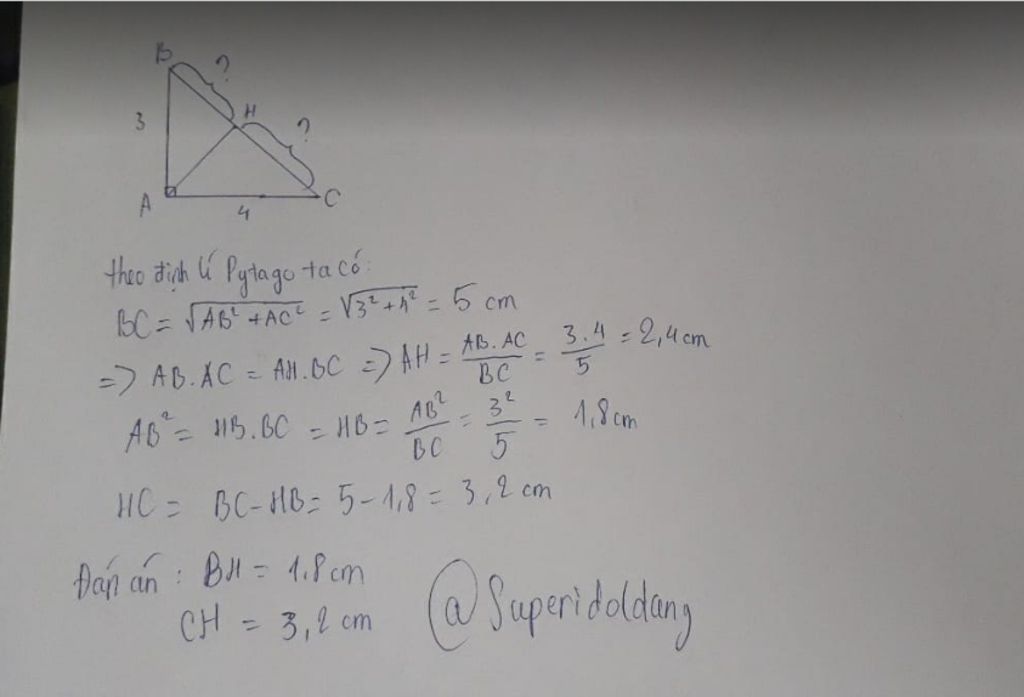 B
?
H
?
3
A
4
C
theo định lí Pytago ta có:
BC = √AB² + AC² = √3² + 4² = 5 cm
=> AB.AC = AH.BC => AH = AB.AC/BC = 3.4/5 = 2,4 cm
AB² = HB.BC = HB = AB²/BC = 3²/5 = 1,8 cm
HC = BC - HB = 5 - 1,8 = 3,2 cm
Đáp án : BH = 1.8 cm
CH = 3,2 cm
@Superidoldang